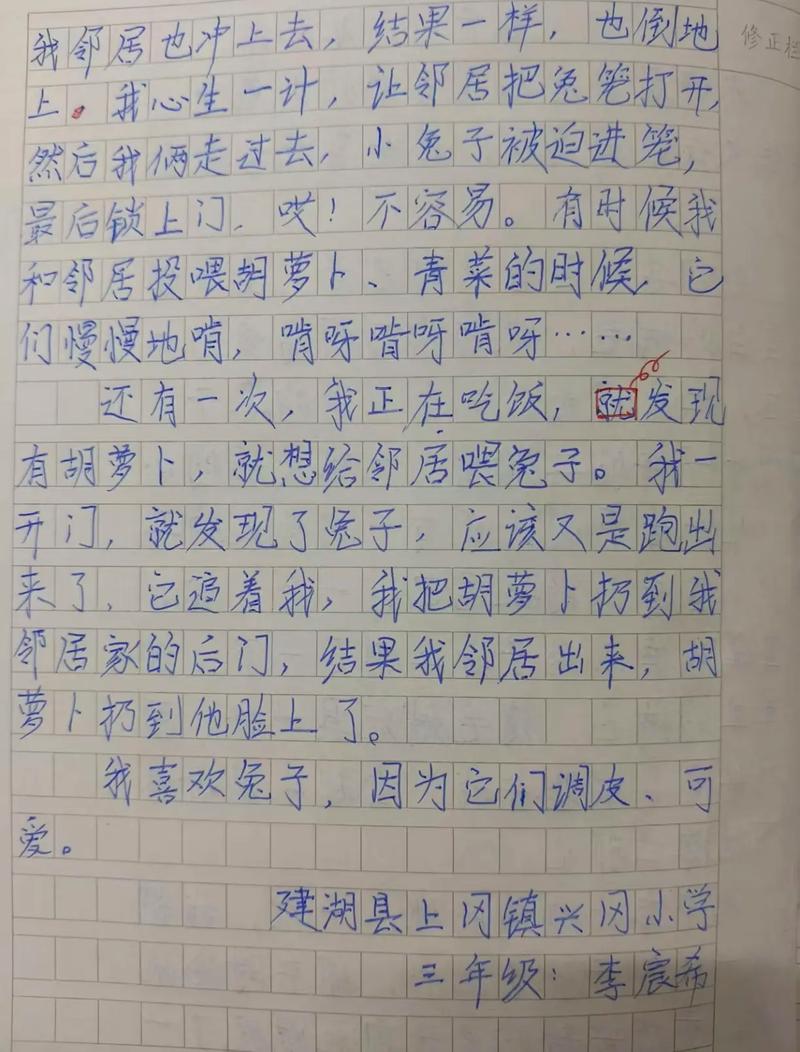 修正栏
我邻居也冲上去，结果一样，也倒地
上。我心生一计，让邻居把兔笼打开，
然后我俩走过去，小兔子被迫进笼，
最后锁上门，哎！不容易。有时候我
和邻居投喂胡萝卜、青菜的时候，它
们慢慢地啃，啃呀啃呀啃呀……
还有一次，我正在吃饭，就发现
有胡萝卜，就想给邻居喂兔子。我一
开门，就发现了兔子，应该又是跑出
来了，它追着我，我把胡萝卜扔到我
邻居家的后门，结果我邻居出来，胡
萝卜扔到他脸上了。
我喜欢兔子，因为它们调皮、可
爱。
建湖县上冈镇兴冈小学
三年级：李宸希